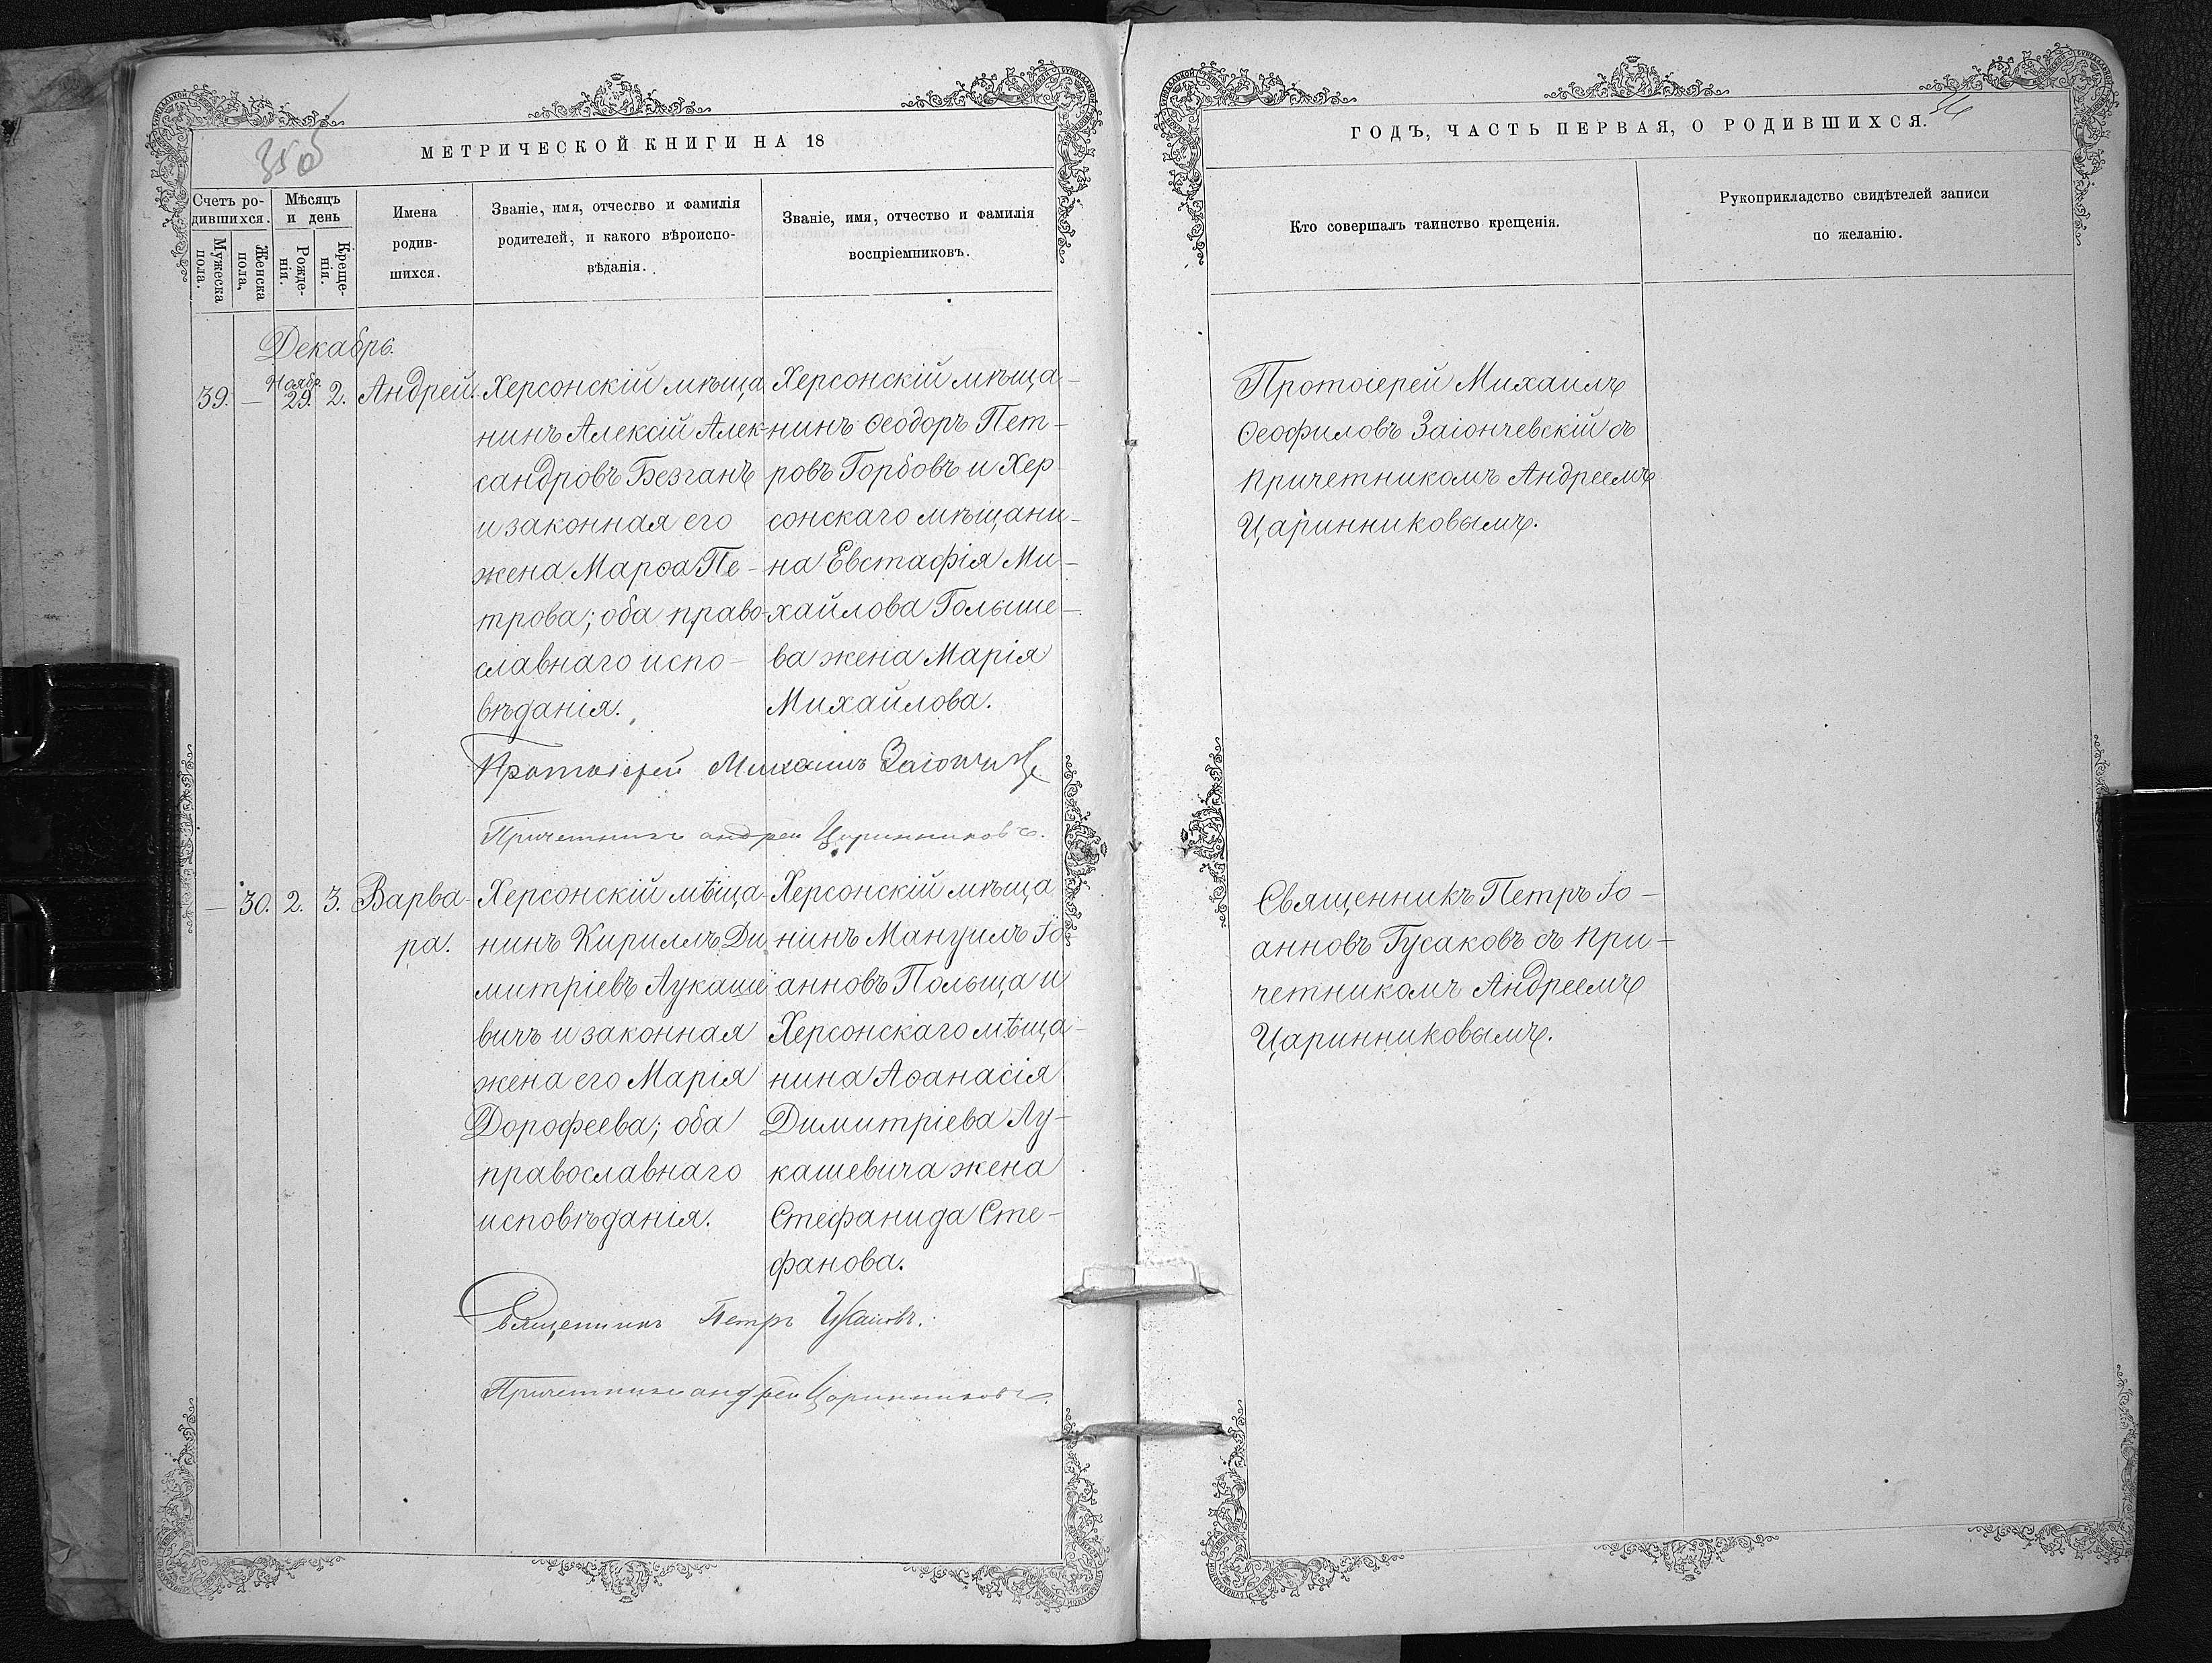 МЕТРИЧЕСКОЙ КНИГИ НА 18
Счетъ ро-
дившихся.
Мужеска
пола.
Женска
пола,
Мѣсяцъ
и день
Рожде-
нія.
Креще-
нія.
Имена
родив-
шихся.
Званіе, имя, отчество и фамилія
родителей, и какого вѣроиспо-
вѣданія.
Званіе, имя, отчество и фамилія
воспріемниковъ.
Декабрь.
39. — Ноябр. 29. 2. Андрей.
Херсонскій мѣща
нинъ Алексій Алек-
сандровъ Безганъ
и законная его
жена Марѳа Пе-
трова; оба право-
славнаго испо-
вѣданія.
Херсонскій мѣща-
нинъ Ѳеодоръ Пет-
ровъ Горбовъ и Хер-
сонскаго мѣщани-
на Евстафія Ми-
хайлова Голыше-
ва жена Марія
Михайлова.
Протоіерей Михаилъ
Причетникъ Андрей Царинниковъ.
— 30. 2. 3. Варва-
ра.
Херсонскій мѣща-
нинъ Кириллъ Ди
митріевъ Лукаше
вичъ и законная
жена его Марія
Дорофеева; оба
православнаго
исповѣданія.
Херсонскій мѣща
нинъ Мануилъ Іо
анновъ Польща и
Херсонскаго мѣща-
нина Аѳанасія
Димитріева Лу-
кашевича жена
Стефанида Сте-
фанова.
Священникъ Петръ Гусаковъ.
Причетникъ Андрей Царинниковъ.
ГОДЪ, ЧАСТЬ ПЕРВАЯ, О РОДИВШИХСЯ.
Кто совершалъ таинство крещенія.
Рукоприкладство свидѣтелей записи
по желанію.
Протоіерей Михаилъ
Ѳеофиловъ Заіончевскій съ
причетникомъ Андреемъ
Царинниковымъ.
Священникъ Петръ Іо-
анновъ Гусаковъ съ при-
четникомъ Андреемъ
Царинниковымъ.